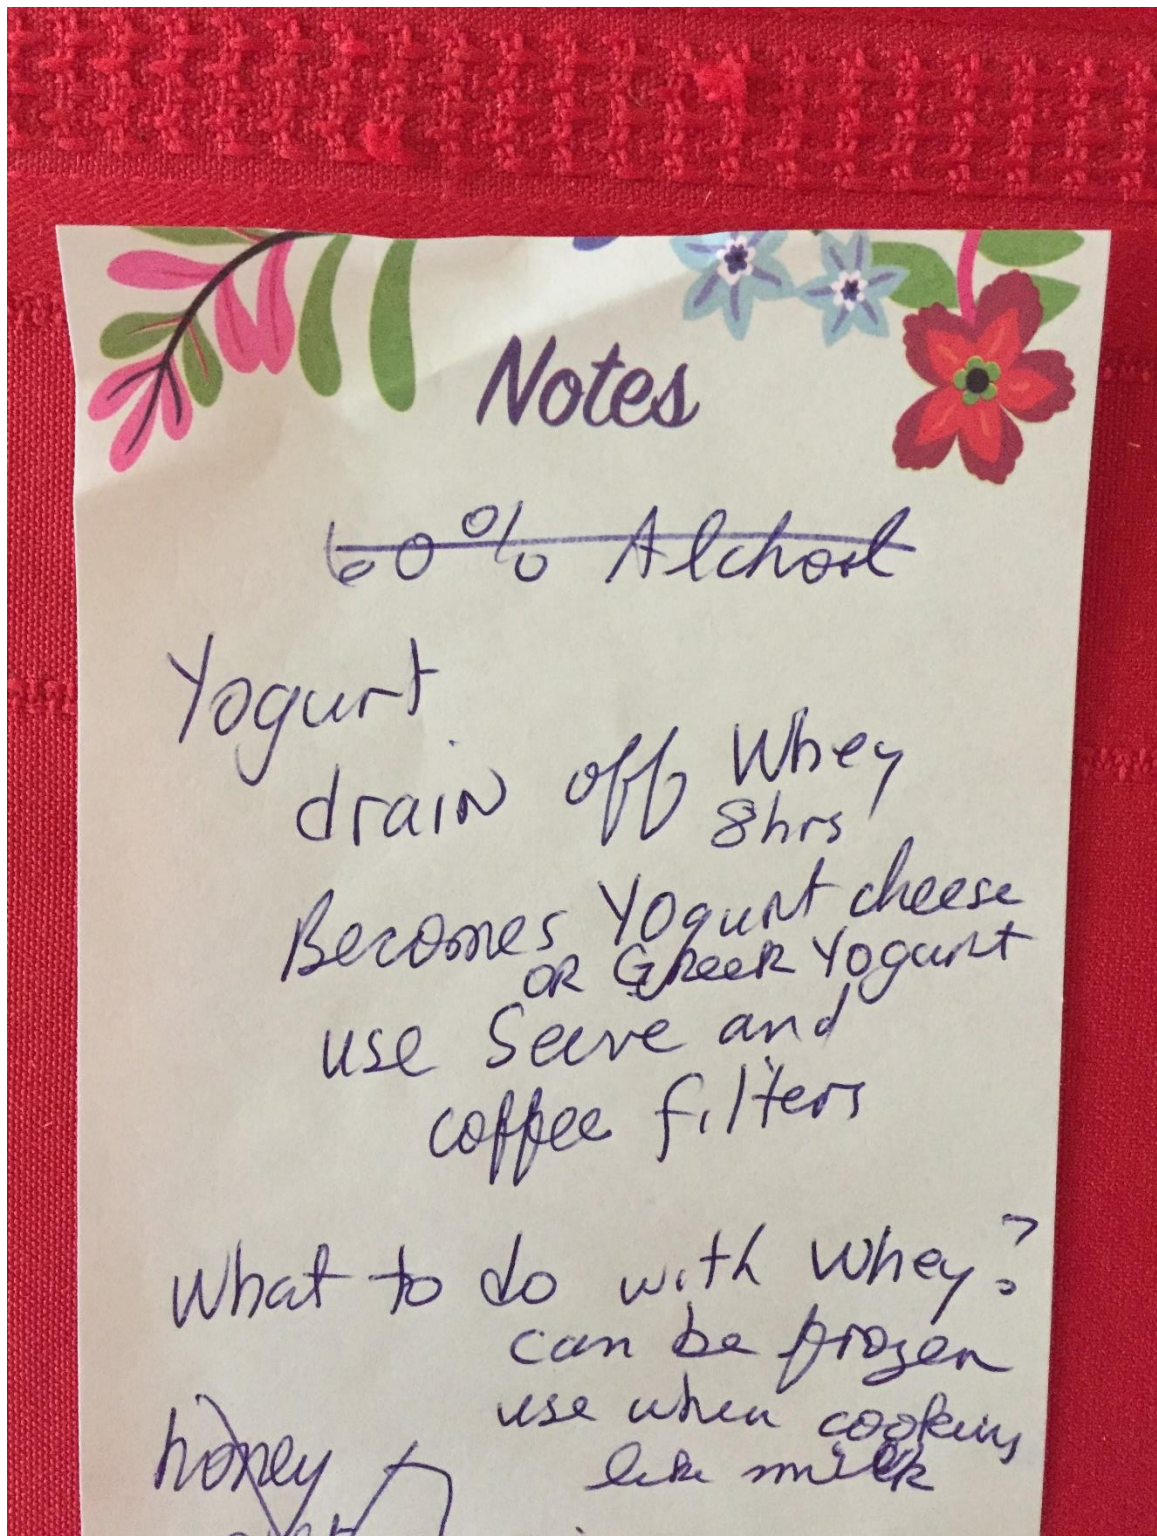 Notes
60% Alchool
Yogurt
drain off Whey
8hrs
Becomes Yogurt cheese
OR Greek Yogurt
use Seive and
coffee filters
What to do with whey?
can be frozen
use when cooking
like milk
honey